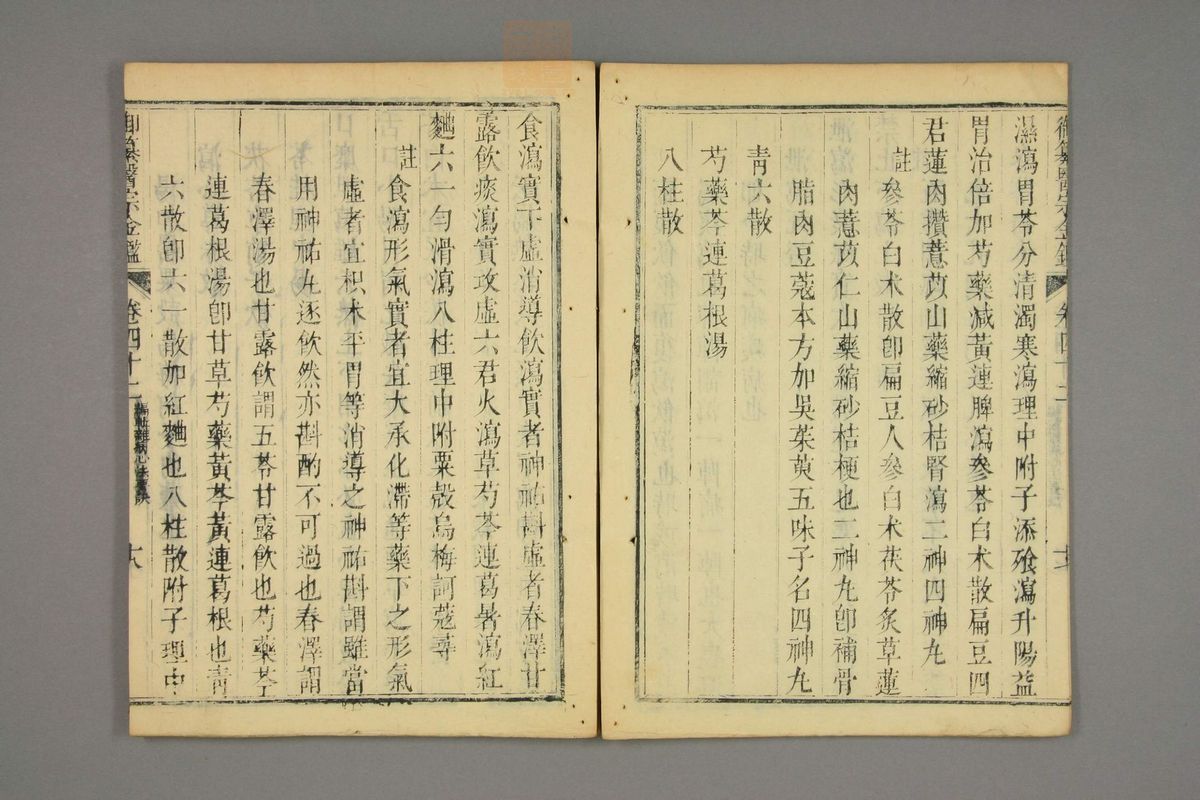 御纂醫宗金鑑 卷四十一
濕瀉胃苓分清濁寒瀉理中附子添飱瀉升陽益
胃治倍加芍藥減黃連脾瀉參苓白朮散扁豆四
君蓮肉攢薏苡山藥縮砂桔腎瀉二神四神丸
註 參苓白朮散卽扁豆人參白朮茯苓炙草蓮
肉薏苡仁山藥縮砂桔梗也二神丸卽補骨
脂肉豆蔻本方加吳茱萸五味子名四神丸
靑六散
芍藥芩連葛根湯
八柱散
食瀉實下虛消導飲瀉實者神祐斟虛者春澤甘
露飲痰瀉實攻虛六君火瀉草芍芩連葛暑瀉紅
麯六一勻滑瀉八柱理中附粟殼烏梅訶蔻尋
註 食瀉形氣實者宜大承化滯等藥下之形氣
虛者宜枳朮平胃等消導之神祐斟謂雖當
用神祐丸逐飲然亦斟酌不可過也春澤謂
春澤湯也甘露飲謂五苓甘露飲也芍藥芩
連葛根湯卽甘草芍藥黃芩黃連葛根也靑
六散卽六一散加紅麯也八柱散附子理中
御纂醫宗金鑑 卷四十一 編輯雜病心法要訣 六